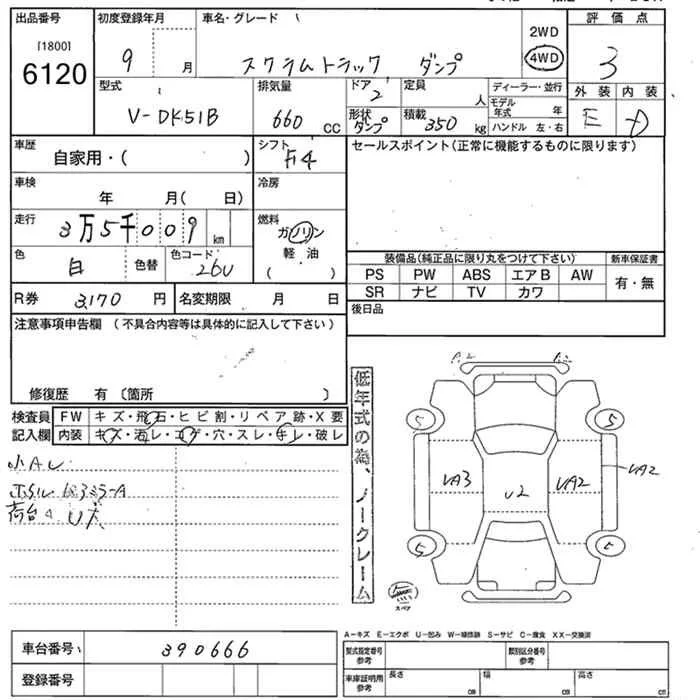 出品番号 初度登録年月 車名・グレード 評価点
[1800]
6120
9 月 スクラムトラック ダンプ
2WD
4WD
3
型式 排気量 ドア 定員 ディーラー・並行 外装 内装
V-DK51B 660 CC 2 人
モデル年式 年
E D
形状 ダンプ 積載 350 kg ハンドル 左・右
車歴 シフト セールスポイント(正常に機能するものに限ります)
自家用・( ) F4
車検 冷房
年 月( 日)
走行 燃料
3万5千009 km ガソリン
軽油
( )
色 白 色替 色コード 26U
装備品(純正品に限り丸をつけて下さい) 新車保証書
PS PW ABS エアB AW 有・無
SR ナビ TV カワ
R券 3,170 円 名変期限 月 日
後日品
注意事項申告欄(不具合内容等は具体的に記入して下さい)
修復歴 有〔箇所 〕
検査員記入欄
FW キズ・飛石・ヒビ割・リペア跡・X要
内装 キズ・汚レ・コゲ・穴・スレ・キレ・破レ
小AU
荷台 U大
低年式の為、ノークレーム
A2
5 5
UA3 U2 UA2 UA2
5
スペア
A-キズ E-エクボ U-凹み W-線修跡 S-サビ C-腐食 XX-交換済
車台番号 390666
登録番号
型式指定番号参考 類別区分番号参考
車庫証明用参考 長さ cm 幅 cm 高さ cm